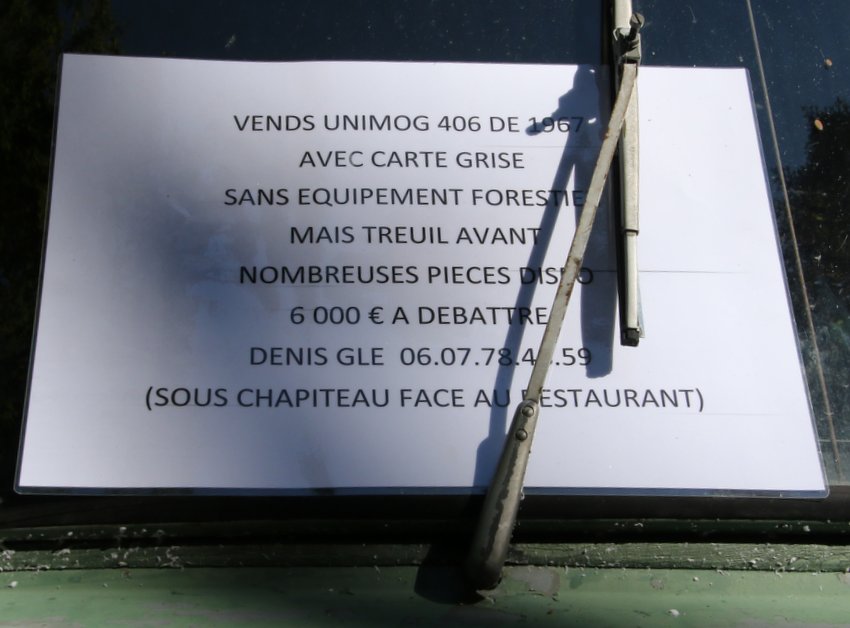 VENDS UNIMOG 406 DE 1967
AVEC CARTE GRISE
SANS EQUIPEMENT FORESTIE
MAIS TREUIL AVANT
NOMBREUSES PIECES DISPO
6 000 € A DEBATTRE
DENIS GLE
(SOUS CHAPITEAU FACE AU RESTAURANT)